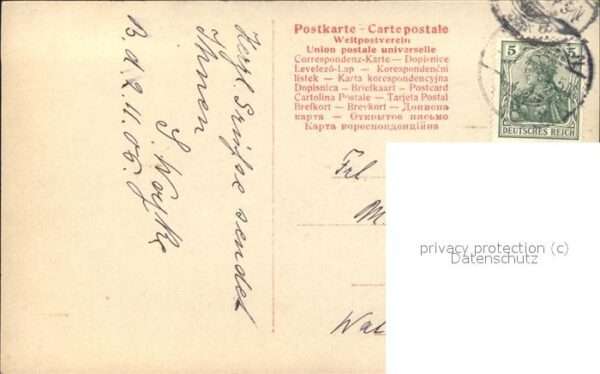 Herzl. Grüsse sendet
Ihnen
S.
B. d. 2.11.06.
Postkarte - Carte postale
Weltpostverein
Union postale universelle
Correspondenz-Karte — Dopisnice
Levelező-Lap — Korespondenční
listek — Karta korespondencyjna
Dopisnica — Briefkaart — Postcard
Cartolina Postale — Tarjeta Postal
Brefkort — Brevkort — Дописна
карта — Открытое письмо
Карта кореспонденційна
5 5
DEUTSCHES REICH
Frl
M.
Wal
privacy protection (c)
Datenschutz